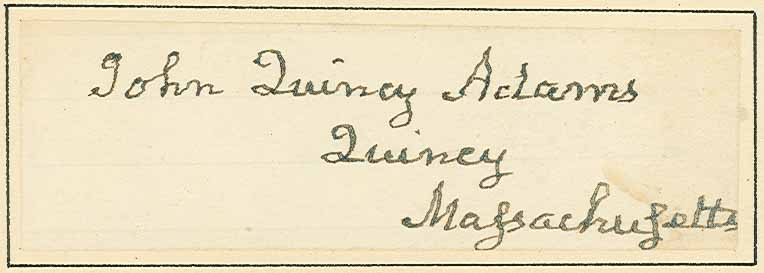 John Quincy Adams
Quincy
Maſsachuſetts